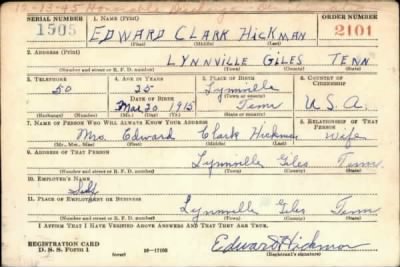 12-13-45 Honorable Discharge
SERIAL NUMBER 1. NAME (Print) ORDER NUMBER
1505 EDWARD CLARK HICKMAN 2101
(First) (Middle) (Last)
2. ADDRESS (Print)
LYNNVILLE GILES TENN
(Number and street or R. F. D. number) (Town) (County) (State)
3. TELEPHONE 4. AGE IN YEARS 5. PLACE OF BIRTH 6. COUNTRY OF CITIZENSHIP
50 25 Lynnville
DATE OF BIRTH (Town or county)
Mar 20 1915 Tenn U.S.A.
(Exchange) (Number) (Mo.) (Day) (Yr.) (State or country)
7. NAME OF PERSON WHO WILL ALWAYS KNOW YOUR ADDRESS 8. RELATIONSHIP OF THAT PERSON
Mrs. Edward Clark Hickman Wife
(Mr., Mrs., Miss) (First) (Middle) (Last)
9. ADDRESS OF THAT PERSON
Lynnville Giles Tenn
(Number and street or R. F. D. number) (Town) (County) (State)
10. EMPLOYER'S NAME
Self
11. PLACE OF EMPLOYMENT OR BUSINESS
Lynnville Giles Tenn
(Number and street or R. F. D. number) (Town) (County) (State)
I AFFIRM THAT I HAVE VERIFIED ABOVE ANSWERS AND THAT THEY ARE TRUE.
REGISTRATION CARD
D. S. S. FORM 1 16-17105 Edward Hickman
(Registrant's signature)